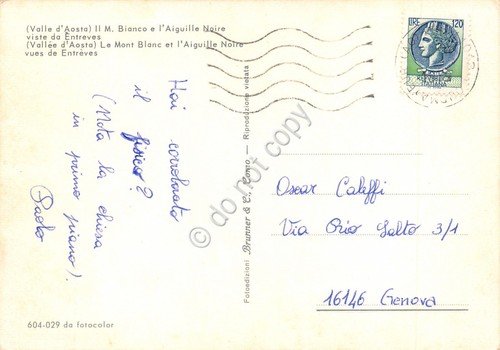 (Valle d'Aosta) Il M. Bianco e l'Aiguille Noire
viste da Entrèves
(Vallée d'Aosta) Le Mont Blanc et l'Aiguille Noire
vues de Entrèves
Hai corroborato
il fisico?
(Nota la chiesa
in primo piano).
Paolo
604-029 da fotocolor
Fotoedizioni Brunner & C., Como - Riproduzione vietata
LIRE 120
Oscar Caleffi
Via Salto 3/1
16146 Genova
do not copy